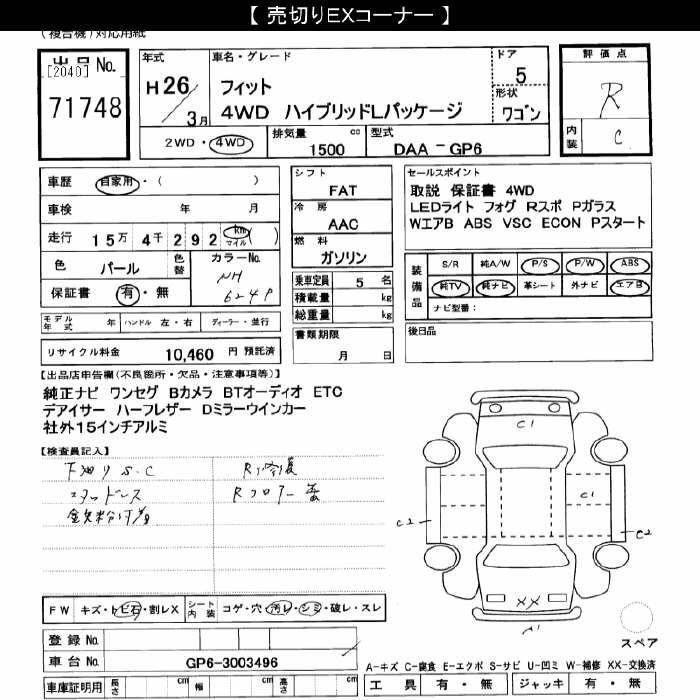 【 売切りEXコーナー 】
(複合機)対応用紙
出品 No.
[2040]
71748
年式
H 26 / 3 月
車名・グレード
フィット
4WD ハイブリッドLパッケージ
ドア
5
形状
ワゴン
評価点
R
内装
C
2WD・4WD
排気量 cc
1500
型式
DAA － GP6
車歴 自家用・( )
車検 年 月
走行 15万 4千 292 km マイル ( )
色 パール
色替
カラーNo.
NH
624P
保証書 有・無
モデル年式 年 ハンドル 左・右 ディーラー・並行
リサイクル料金 10,460 円 預託済
シフト
FAT
冷房
AAC
燃料
ガソリン
乗車定員 5 名
積載量 kg
総重量 kg
書類期限
月 日
セールスポイント
取説 保証書 4WD
LEDライト フォグ Rスポ Pガラス
WエアB ABS VSC ECON Pスタート
装備品
S/R 純A/W P/S P/W ABS
純TV 純ナビ 革シート 外ナビ エアB
ナビ型番:
後日品
【出品店申告欄(不良箇所・欠品・注意事項等)】
純正ナビ ワンセグ Bカメラ BTオーディオ ETC
デアイサー ハーフレザー Dミラーウインカー
社外15インチアルミ
【検査員記入】
下廻り S.C
R修復
スタッドレス
Rフロアー
鉄粉付着
C1
C1
C2
C2
XX
A1
スペア
FW キズ・トビ石・割レX
シート内装 コゲ・穴・汚レ・シミ・破レ・スレ
登録 No.
車台 No. GP6-3003496
車庫証明用 長さ cm 幅 cm 高さ cm
A-キズ C-腐食 E-エクボ S-サビ U-凹ミ W-補修 XX-交換済
工具 有・無 ジャッキ 有・無